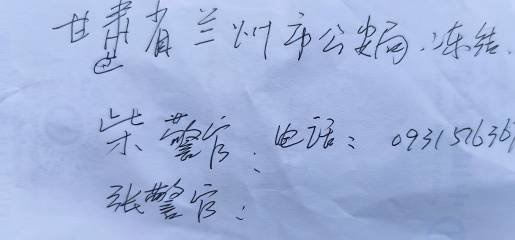 甘肃省兰州市公安局.冻结.
柴警官、电话:
张警官: